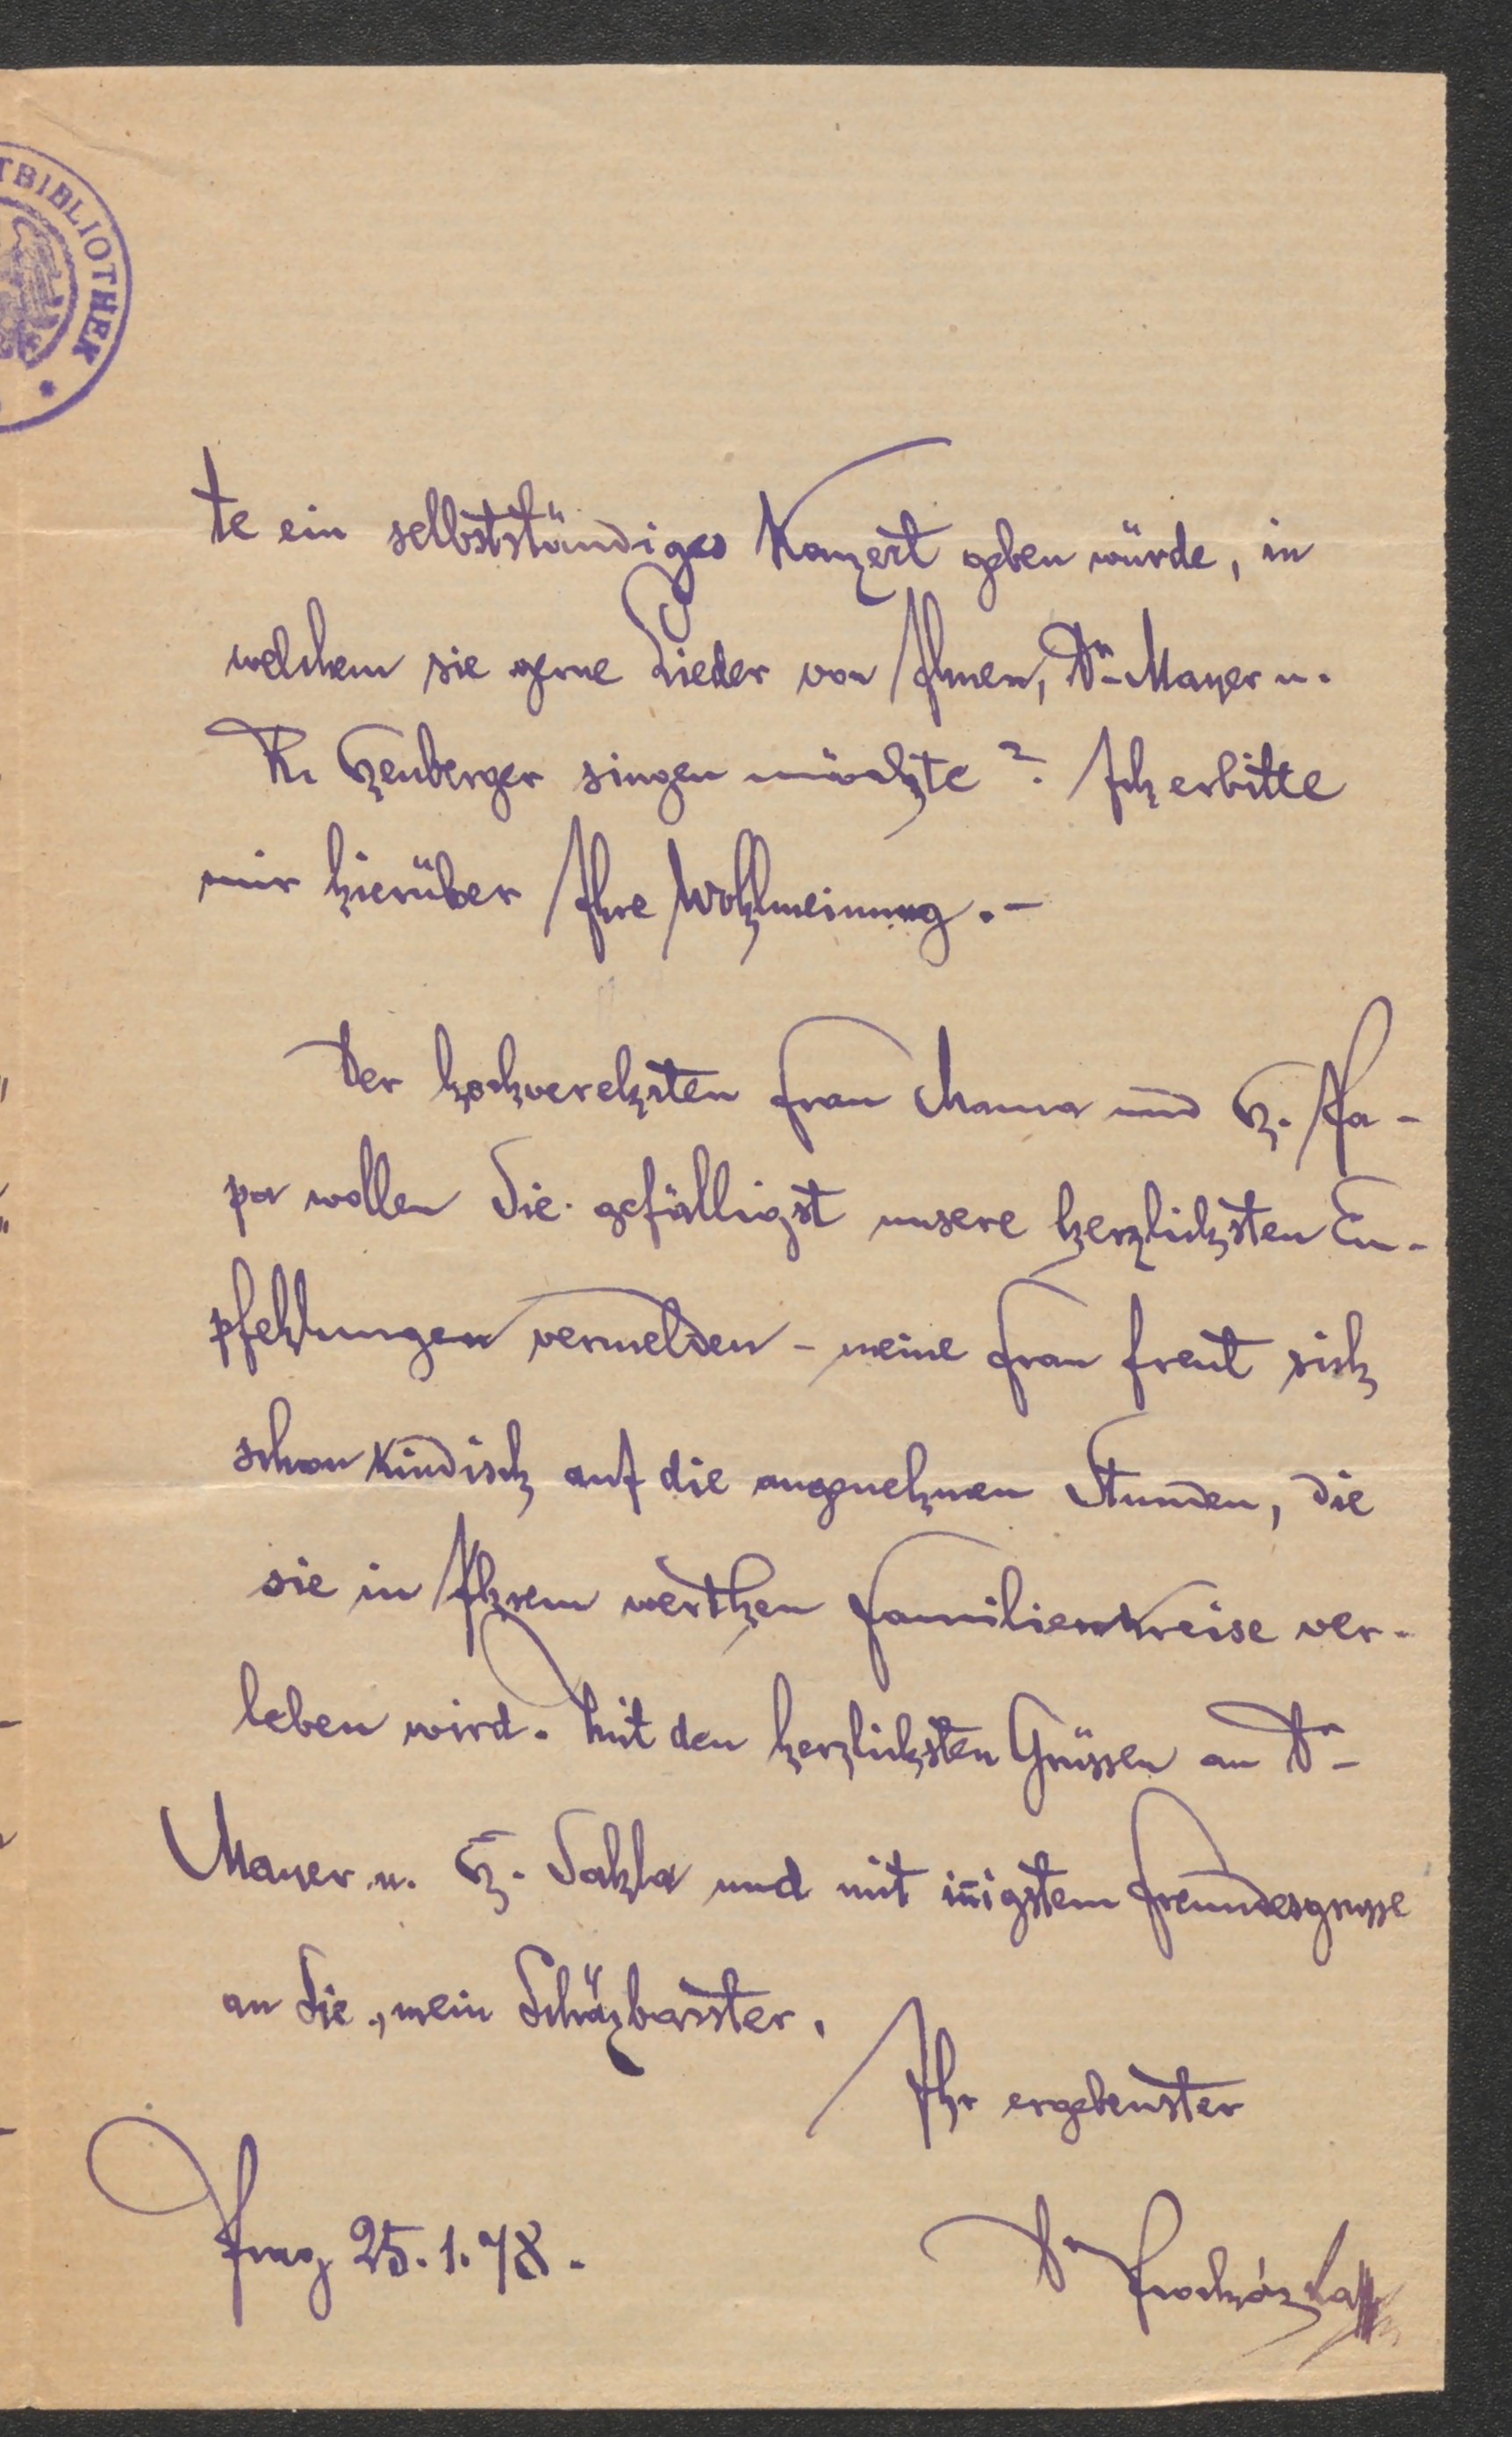 TBIBLIOTHEK *
te ein selbstständiges Konzert geben würde, in
welchem sie gerne Lieder von Ihnen, Dr Mayer u.
Hzenberger singen möchte? Ich erbitte
mir hierüber Ihre Wohlmeinung. –
Der hochverehrten Frau Mama und H. Pa-
pa wollen Sie gefälligst unsere herzlichsten Em-
pfehlungen vermelden – meine Frau freut sich
schon kindisch auf die angenehmen Stunden, die
sie in Ihrem werthen Familienkreise ver-
leben wird. Mit den herzlichsten Grüssen an Dr
Mayer u. H. Sahla und mit iñigstem Freundesgrusse
an Sie, mein Schäzbarster.
Ihr ergebenster
Prag 25.1.78.
Dr Procházka